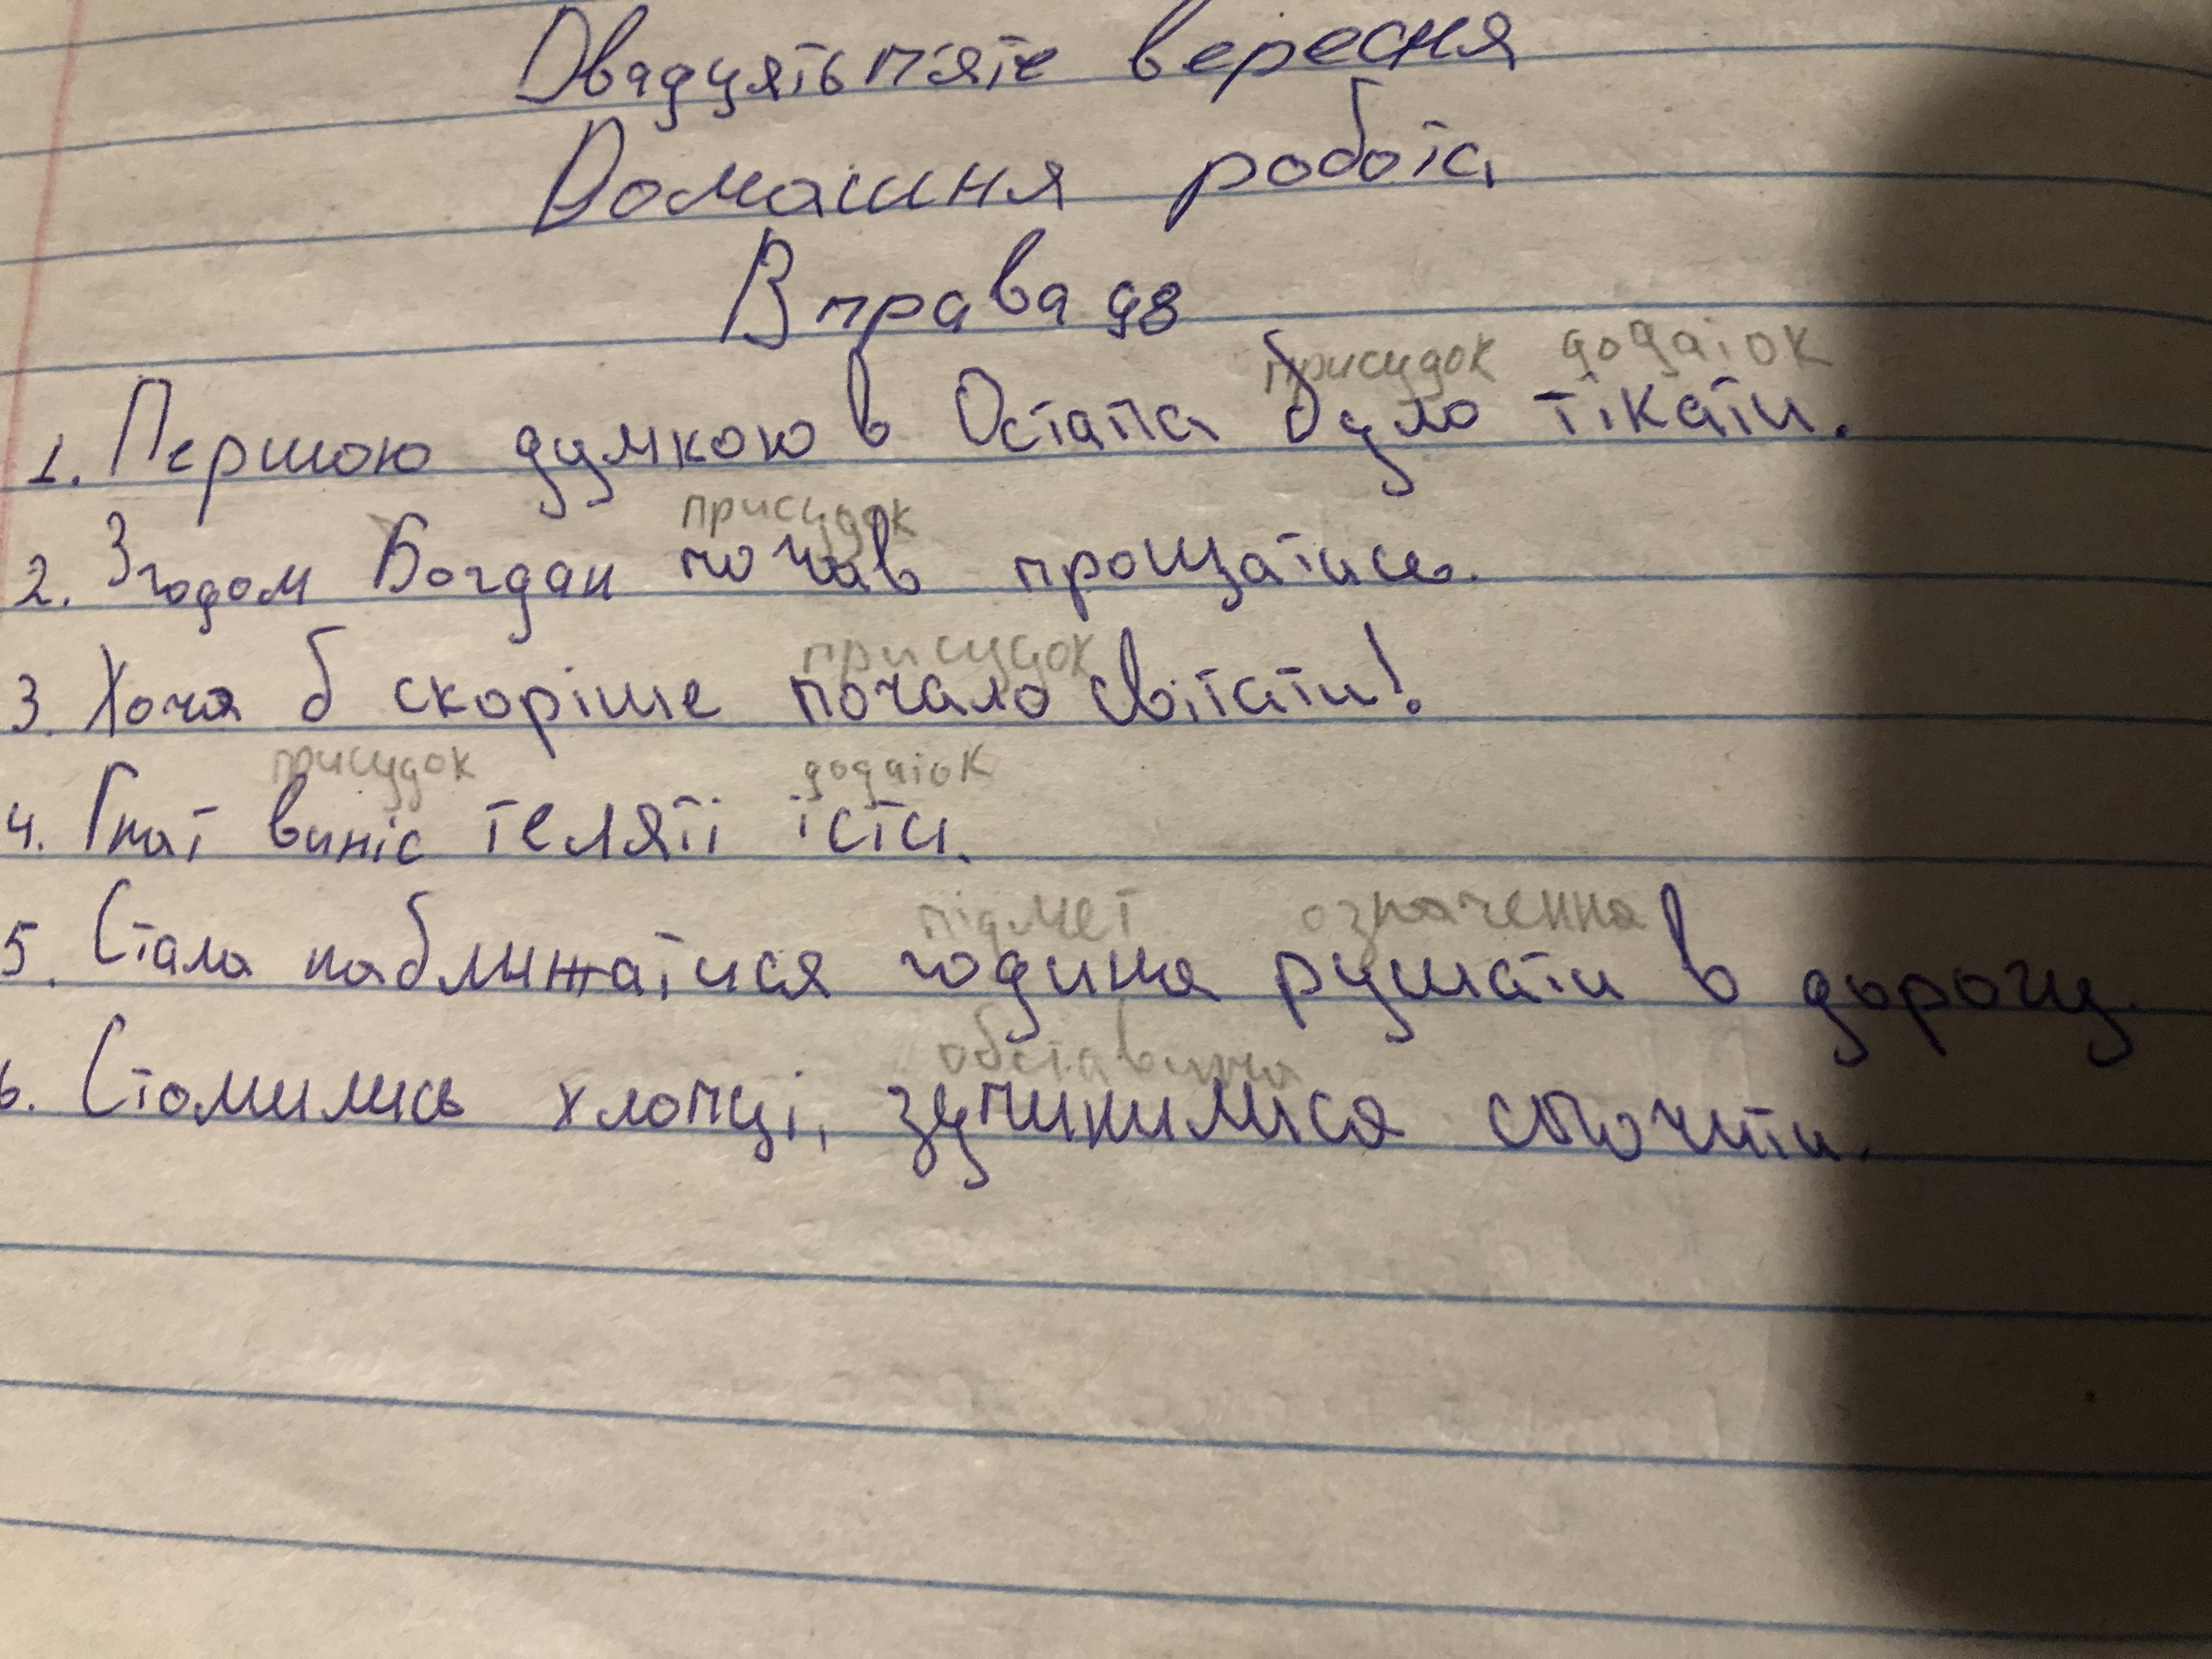 Двадцять п'яте вересня
Домашня робота
Вправа 98
присудок додаток
1. Першою думкою в Остапа було тікати.
присудок
2. Згодом Богдан почав прощатись.
присудок
3. Хоча б скоріше почало світати!
присудок додаток
4. Гнат виніс теляті їсти.
підмет означення
5. Стала наближатися година рушати в дорогу.
обставина
6. Стомились хлопці, зупинилися спочити.